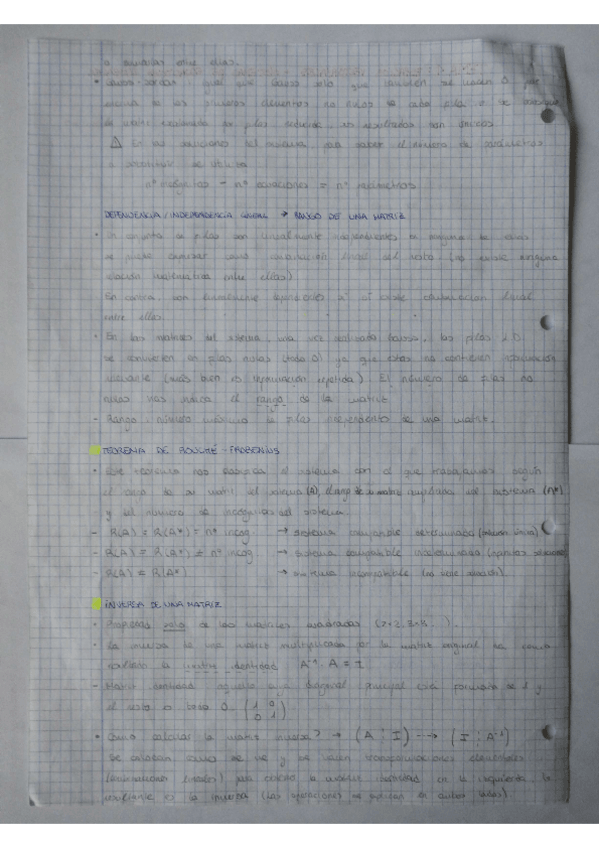 o sumarlas entre ellas.
• Gauss-Jordan: igual que Gauss solo que también se hacen 0 por
encima de los primeros elementos no nulos de cada fila y se consigue
la matriz escalonada por filas reducida, los resultados son únicos.
⚠ En las soluciones del sistema, para saber el número de parámetros
a sustituir se utiliza
nº incógnitas - nº ecuaciones = nº parámetros
DEPENDENCIA / INDEPENDENCIA LINEAL → RANGO DE UNA MATRIZ
• Un conjunto de filas son linealmente independientes si ninguna de ellas
se puede expresar como combinación lineal del resto (no existe ninguna
relación matemática entre ellas)
En contra, son linealmente dependientes si sí existe combinación lineal
entre ellas.
• En las matrices del sistema, una vez realizado Gauss, las filas L.D.
se convierten en filas nulas (todo 0) ya que éstas no contienen información
relevante (más bien es información repetida). El número de filas no
nulas nos indica el rango de la matriz
- Rango: número máximo de filas independientes de una matriz.
TEOREMA DE ROUCHÉ - FROBENIUS
• Este teorema nos clasifica el sistema con el que trabajamos según
el rango de su matriz del sistema (A), el rango de su matriz ampliada del sistema (A*)
y el número de incógnitas del sistema.
- R(A) = R(A*) = nº incog. → sistema compatible determinado (solución única)
- R(A) = R(A*) ≠ nº incog. → sistema compatible indeterminado (infinitas soluciones)
- R(A) ≠ R(A*) → sistema incompatible (no tiene solución)
INVERSA DE UNA MATRIZ
• Propiedad solo de las matrices cuadradas (2×2, 3×3...).
• La inversa de una matriz multiplicada por la matriz original da como
resultado la matriz identidad A⁻¹ · A = I
- Matriz identidad: aquella cuya diagonal principal está formada de 1 y
el resto es todo 0. (1 0
0 1)
• Como calcular la matriz inversa? → (A ⋮ I) ⇢ (I ⋮ A⁻¹)
Se colocan como se ve y se hacen transformaciones elementales
(combinaciones lineales) para obtener la matriz identidad en la izquierda, la
resultante es la inversa (las operaciones se aplican en ambos lados).